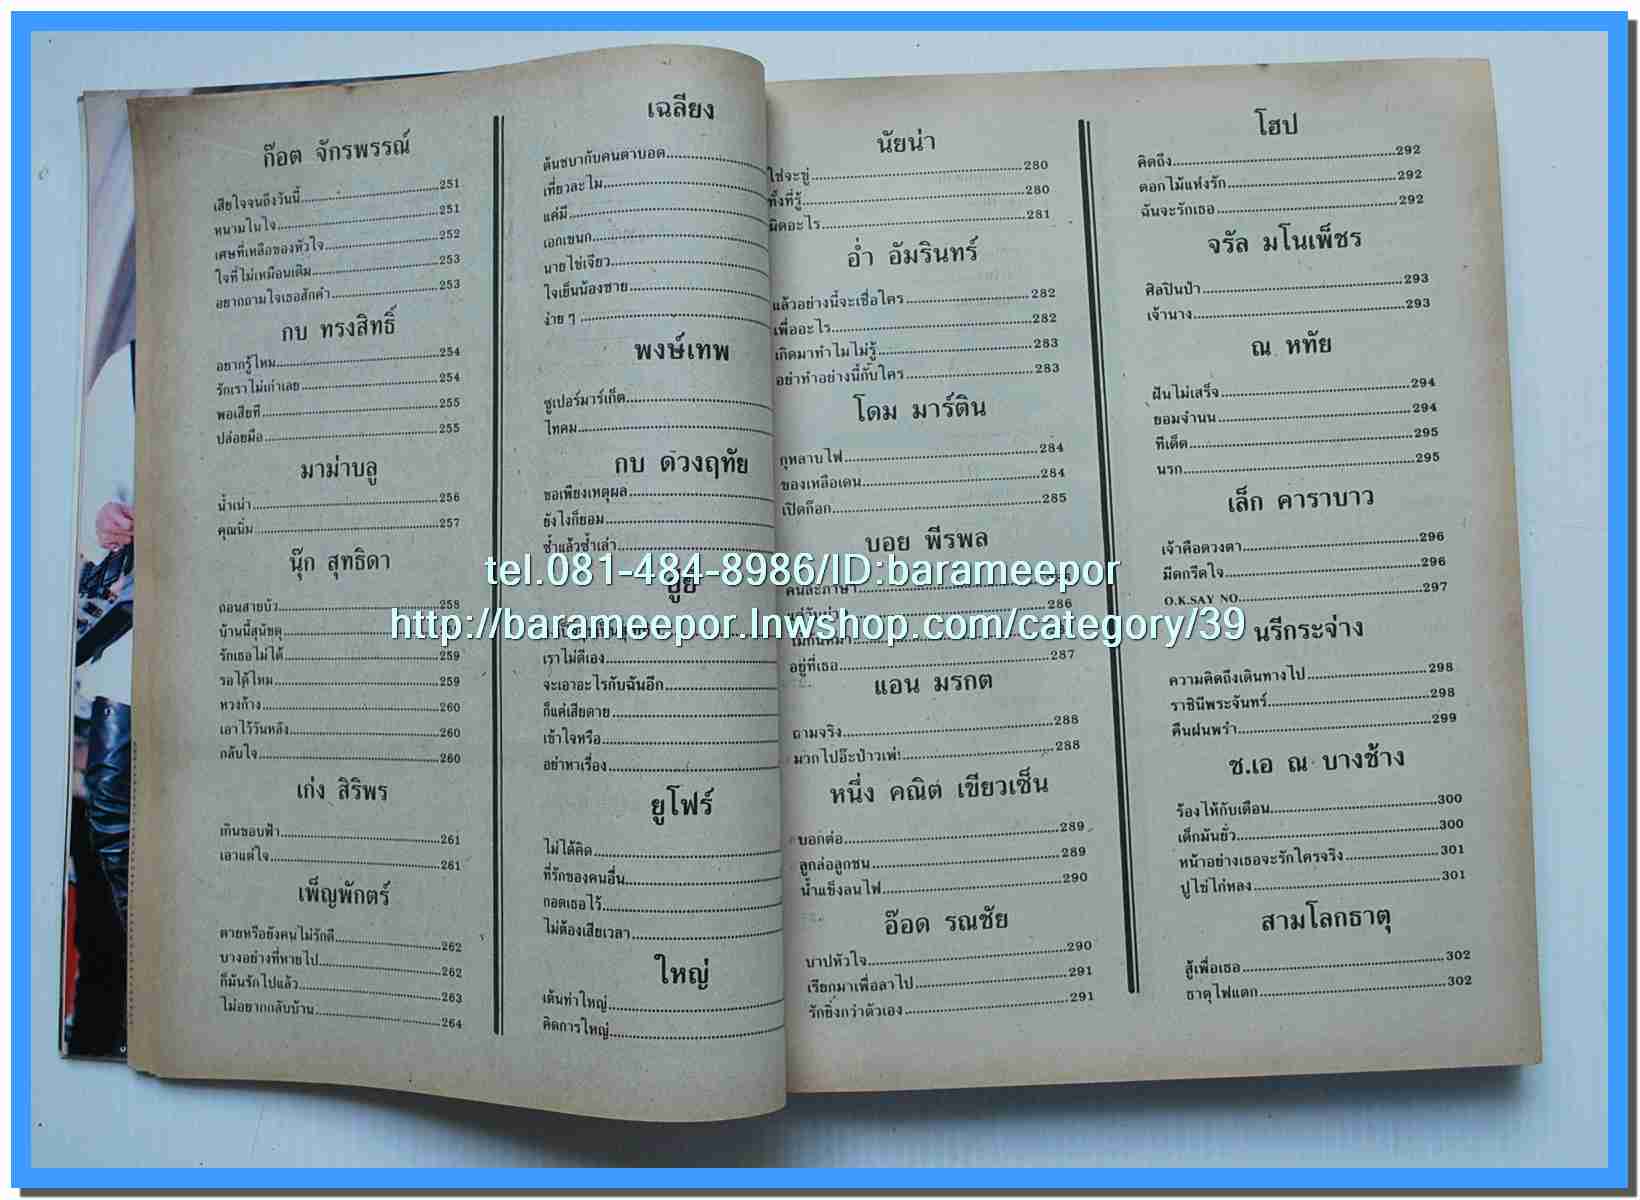 ก๊อต จักรพรรณ์
เสียใจจนถึงวันนี้.....251
หนามในใจ.....251
เศษที่เหลือของหัวใจ.....252
ใจที่ไม่เหมือนเดิม.....253
อยากถามใจเธอสักคำ.....253
กบ ทรงสิทธิ์
อยากรู้ไหม.....254
รักเราไม่เก่าเลย.....254
พอเสียที.....255
ปล่อยมือ.....255
มาม่าบลู
น้ำเน่า.....256
คุณนิ่ม.....257
นุ๊ก สุทธิดา
ถอนสายบัว.....258
บ้านนี้สุนัขดุ
รักเธอไม่ได้.....259
รอได้ไหม.....259
หวงก้าง.....260
เอาไว้วันหลัง.....260
กลับใจ.....260
เก่ง สิริพร
เกินขอบฟ้า.....261
เอาแต่ใจ.....261
เพ็ญพักตร์
ตายหรือยังคนไม่รักดี.....262
บางอย่างที่หายไป.....262
ก็มันรักไปแล้ว.....263
ไม่อยากกลับบ้าน.....264
เฉลียง
ต้นชบากับคนตาบอด.....
เที่ยวละไม.....
แค่มี.....
เอกเขนก.....
นายไข่เจียว.....
ใจเย็นน้องชาย.....
ง่าย ๆ.....
พงษ์เทพ
ซูเปอร์มาร์เก็ต.....
ไทคม.....
กบ ดวงฤทัย
ขอเพียงเหตุผล.....
ยังไงก็ยอม.....
ซ้ำแล้วซ้ำเล่า.....
เราไม่ดีเอง.....
จะเอาอะไรกับฉันอีก.....
ก็แค่เสียดาย.....
เข้าใจหรือ.....
อย่าหาเรื่อง.....
ยูโฟร์
ไม่ได้คิด.....
ที่รักของคนอื่น.....
กอดเธอไว้.....
ไม่ต้องเสียเวลา.....
ใหญ่
เต้นท่าใหญ่.....
คิดการใหญ่.....
นัยน่า
ใช่จะขู่.....280
ทั้งที่รู้.....280
ผิดอะไร.....281
อ่ำ อัมรินทร์
แล้วอย่างนี้จะเชื่อใคร.....282
เพื่ออะไร.....282
เกิดมาทำไมไม่รู้.....283
อย่าทำอย่างนี้กับใคร.....283
โดม มาร์ติน
กุหลาบไฟ.....284
ของเหลือเดน.....284
เปิดก๊อก.....285
บอย พีรพล
คนละภาษา
286
อยู่ที่เธอ.....287
แอน มรกต
ถามจริง.....288
มากไปอ๊ะป่าวเพ่!.....288
หนึ่ง คณิต เขียวเซ็น
บอกต่อ.....289
ลูกล่อลูกชน.....289
น้ำแข็งลนไฟ.....290
อ๊อด รณชัย
บาปหัวใจ.....290
เรียกมาเพื่อลาไป.....291
รักยิ่งกว่าตัวเอง.....291
โฮป
คิดถึง.....292
ดอกไม้แห่งรัก.....292
ฉันจะรักเธอ.....292
จรัล มโนเพ็ชร
ศิลปินป่า.....293
เจ้านาง.....293
ณ หทัย
ฝันไม่เสร็จ.....294
ยอมจำนน.....294
ทีเด็ด.....295
นรก.....295
เล็ก คาราบาว
เจ้าคือดวงตา.....296
มีดกรีดใจ.....296
O.K.SAY NO.....297
นรีกระจ่าง
ความคิดถึงเดินทางไป.....298
ราชินีพระจันทร์.....298
คืนฝนพรำ.....299
ช.เอ ณ บางช้าง
ร้องไห้กับเดือน.....300
เด็กมันยั่ว.....300
หน้าอย่างเธอจะรักใครจริง.....301
ปูไข่ไก่หลง.....301
สามโลกธาตุ
สู้เพื่อเธอ.....302
ธาตุไฟแตก.....302
tel.081-484-8986/ID:barameepor
http://barameepor.lnwshop.com/category/39